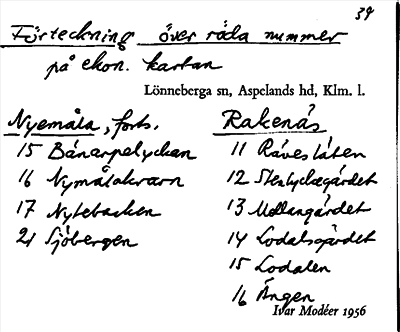 39
Förteckning över röda nummer
på ekon. kartan
Lönneberga sn, Aspelands hd, Klm. l.
Nyemåla, forts.
15 Bånarpelyckan
16 Nymålakvarn
17 Nytebacken
21 Sjöbergen
Rakenäs
11 Råveslåten
12 Stenlyckegärdet
13 Mellangärdet
14 Lodalsgärdet
15 Lodalen
16 Ängen
Ivar Modéer 1956